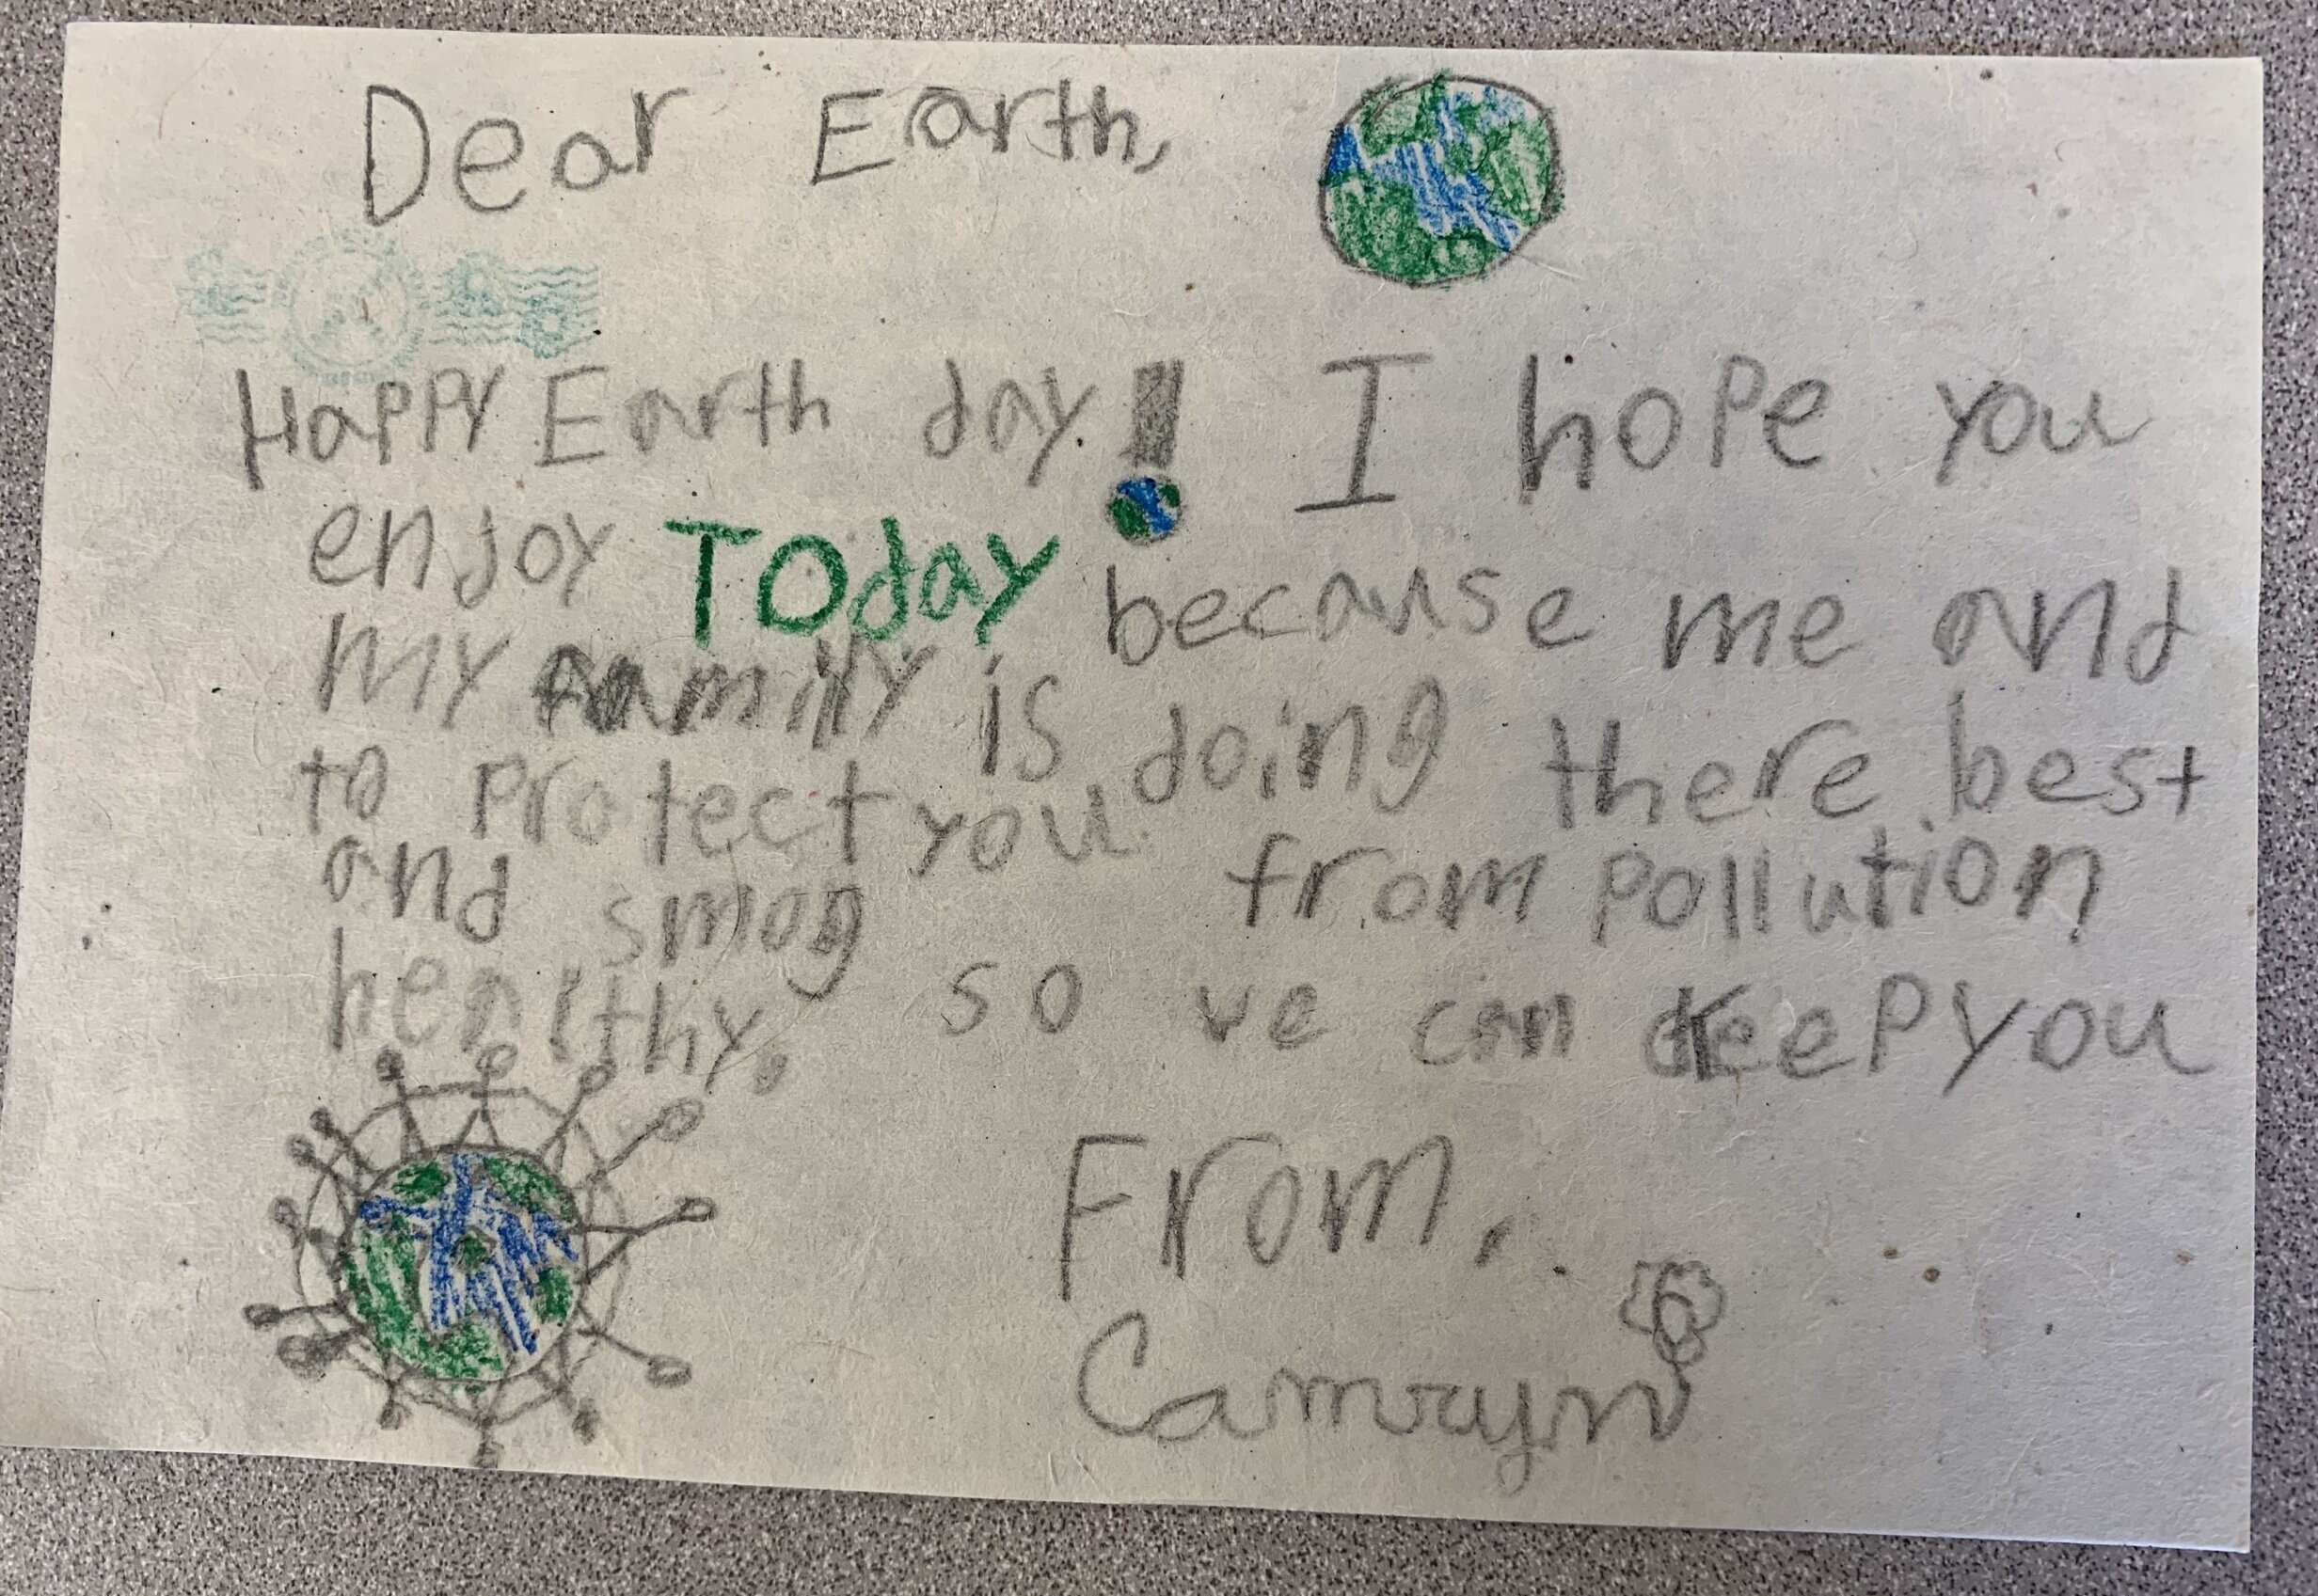 Dear Earth,
Happy Earth day! I hope you
enjoy Today because me and
my family is doing there best
to protect you from pollution
and smog so we can keep you
healthy.
From,
Camryn